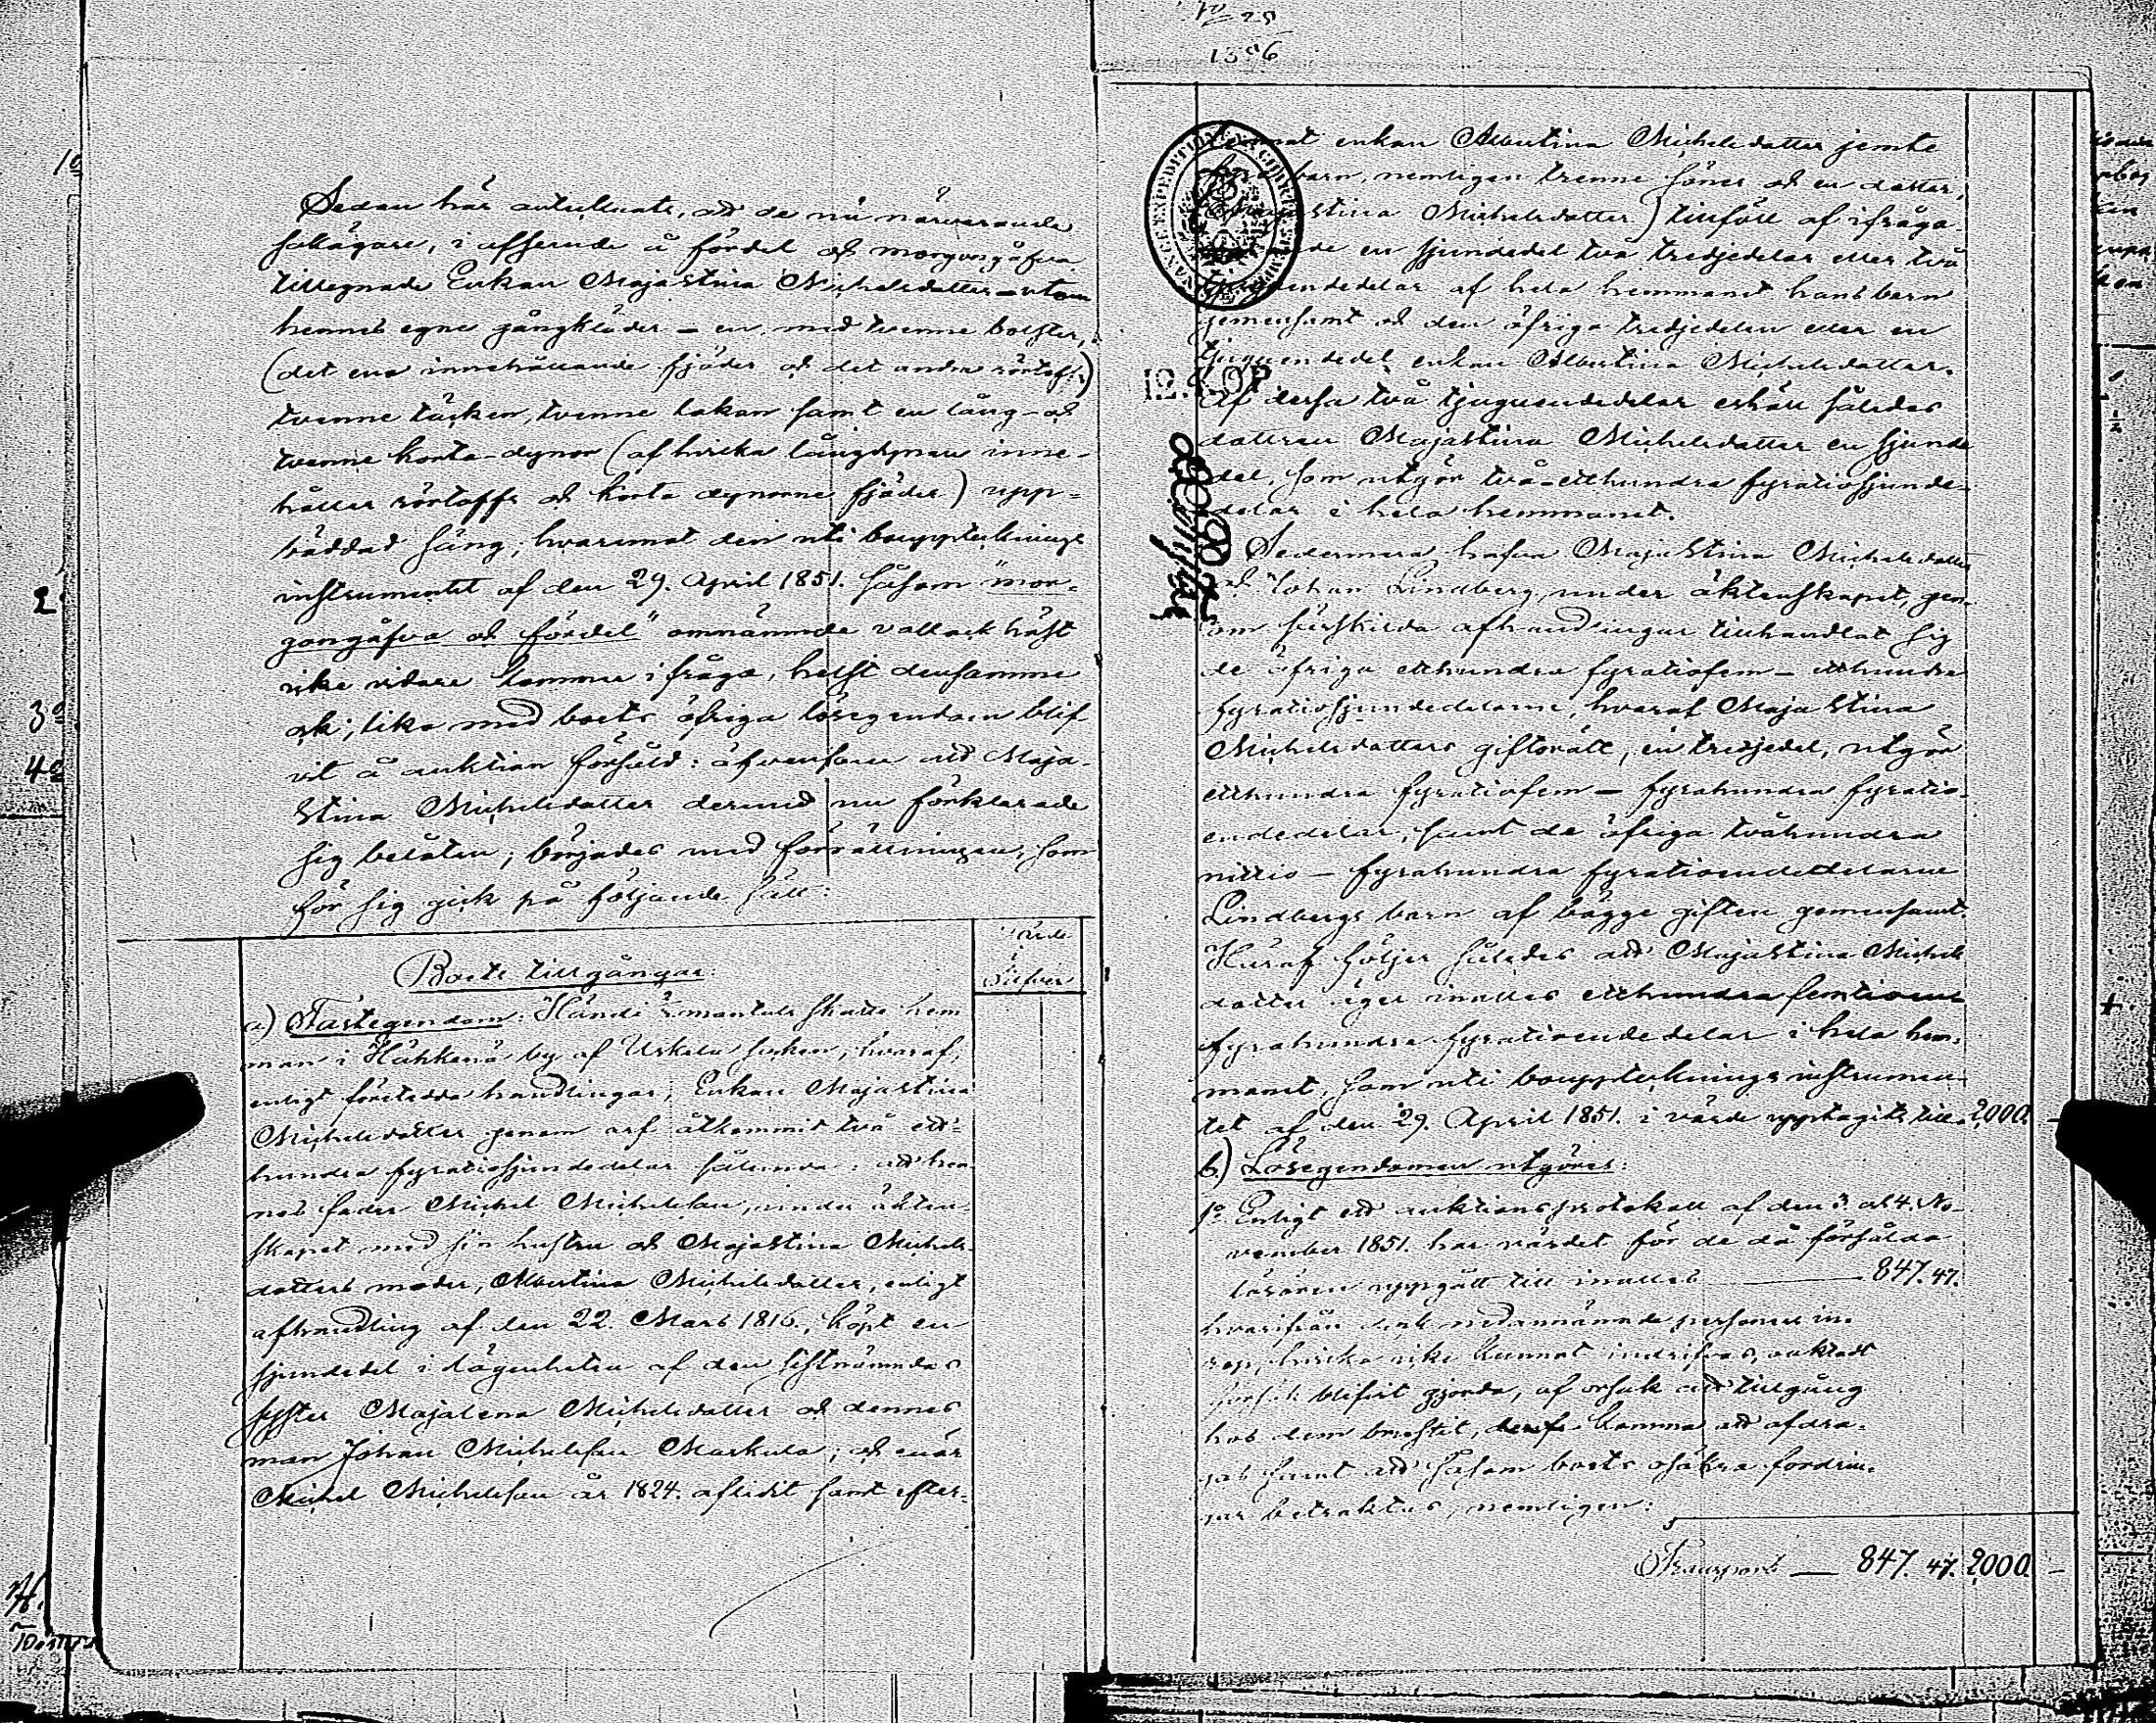 Sedan här antecknats, att de nu närvarande
sakägare, i afseende å fördel och morgongåfva
tillegnade Enkan Maja Stina Michelsdotter utom
hennes egne gångkläder – en med tvenne bolster,
(det ena innehållande fjäder och det andra
tvenne täcken, tvenne lakan samt en lång- och
tvenne korta-dynor (af hvilka långdynan inne-
håller och korta dynorne fjäder) upp-
bäddad säng; hvaremot den uti bouppteknings
instrumentet af den 29. April 1851. såsom "mor-
gongåfva och fördel" omnämnde vallack häst
icke vidare komme i fråga, helst densamme
ock, lika med boets öfriga lösegendom blif
vit å auktion försåld: äfvensom att Maja
Stina Michelsdotter dermed nu förklarade
sig belåten; börjades med förrättningen, som
för sig gick på följande sätt:
Värde
i
Silfver
Boets tillgångar:
a) Fastegendom: mantals skatte hem
man i by af Urkala socken, hvaraf,
enligt företedda handlingar, Enkan Maja Stina
Michelsdotter genom arf åtkommit två ett-
hundra fyratiosjundedelar sålunda: att hen
nes fader Michel Michelsson, under äkten-
skapet med sin hustru och Maja Stina Michels-
dotters moder, Albertina Michelsdotter, enligt
afhandling af den 22. Mars 1816, köpt en
sjundedel i lägenheten af den sistnämndas
syster Maja Lena Michelsdotter och dennes
man Johan Michelsson Markula; och enär
Michel Michelsson år 1824. aflidit samt efter-
lemnat enkan Albertina Michelsdotter jemte
barn, nemligen trenne söner och en dotter,
Maja Stina Michelsdotter) tillföll af ifråga-
en sjundedel två tredjedelar eller två
tjuguendedelar af hela hemmanet hans barn
gemensamt och den öfriga tredjedelen eller en
tjuguendedel enkan Albertina Michelsdotter.
Af dessa två tjuguendedelar erhöll således
dottren Maja Stina Michelsdotter en sjunde
del, som utgör två-etthundra fyratiosjunde-
delar i hela hemmanet.
Sedermera hafva Maja Stina Michelsdotter
och Johan Lindberg under äktenskapet, gen-
om särskilda afhandlingar tillhandlat sig
de öfriga etthundra fyratiofem – etthundra
fyratiosjundedelarne, hvaraf Maja Stina
Michelsdotters giftorätt, en tredjedel, utgör
etthundra fyratiofem – fyrahundra fyratio-
endedelar, samt de öfriga tvåhundra
nittio – fyrahundra fyratioendedelarne
Lindbergs barn af bägge giften gemensamt.
Häraf följer således att Maja Stina Michels
dotter äger inalles etthundra femtioen
fyrahundra fyratioendedelar i hela hem-
manet, som uti bouppteknings instrumen-
tet af den 29. April 1851. i värde upptagits till 2,000. –
b.) Lösegendomen utgöres:
1o Enligt ett auktions protokoll af den 3. och 4. No-
vember 1851. har värdet för de då försålda
lösören uppgått till inalles — 847. 47.
hvarifrån dock nedannämnde personers in-
rop, hvilka icke kunnat indrifvas, oaktadt
försök blifvit gjorda, af orsak att tillgång
hos dem brustit, komma att afdra-
gas samt att såsom boets osäkra fordrin-
gar betraktas, nemligen:
Transport — 847. 47. 2,000. –